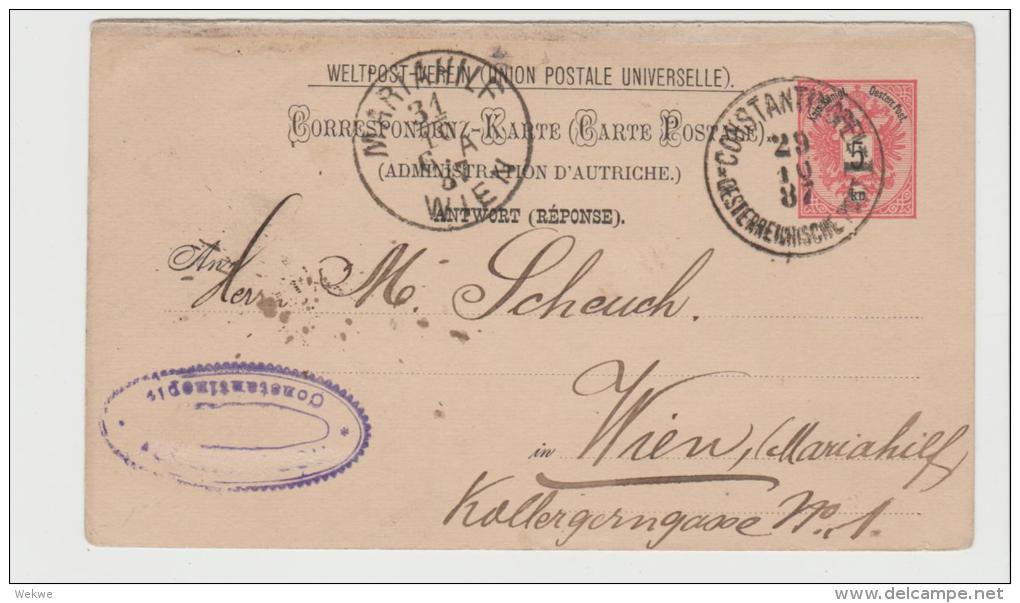 WELTPOST-VEREIN. (UNION POSTALE UNIVERSELLE).
CORRESPONDENZ-KARTE (CARTE POSTALE).
(ADMINISTRATION D'AUTRICHE.)
ANTWORT (RÉPONSE).
MARIAHILF
31
10
A
87
WIEN
CONSTANTINOPEL
29
10
87
OESTERREICHISCHE
Oesterr. Post.
An
Herrn M. Scheuch.
in Wien, (Mariahilf)
Kollergerngasse No. 1.
Constantinople
Wekwe
delcampe.net